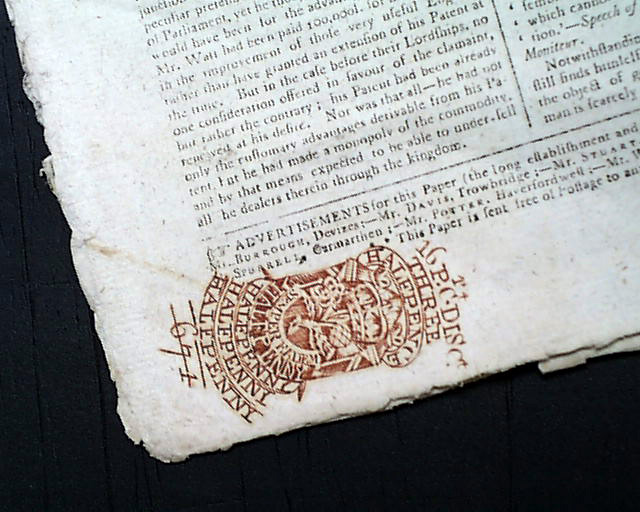 peculiar
of Parliament, yet he
would have been for the advan
Mr. Watt had been paid 100,000l. for
in the improvement of those very useful Eng
rather than have granted an extension of his Patent at
the time. But in the case before their Lordships, no
one consideration offered in favour of the claimant,
but rather the contrary; his Patent had been already
renewed at his desire. Nor was that all—he had not
only the customary advantages derivable from his Pa-
tent, but he had made a monopoly of the commodity,
and by that means expected to be able to under-sell
all the dealers therein through the kingdom.
which cannot
tion.'—Speech of
Moniteur.
Notwithstandin
still finds himself
the object of
man is scarcely
ADVERTISEMENTS for this Paper (the long establishment and
BURROUGH, Devizes;—Mr. DAVIS, Trowbridge;—Mr. STUART,
SPURRELL, Carmarthen;—Mr. POTTER, Haverfordwest;—Mr.
This Paper is sent free of Postage to an
16 Pr. Ct. DISCt.
THREE
HALFPENCE
HALFPENNY
HALFPENNY
HALFPENNY
674